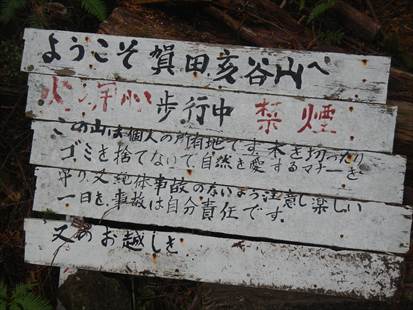 ようこそ賀田亥谷山へ
火の用心 歩行中 禁煙
この山は個人の所有地です。木を切ったり
ゴミを捨てないで自然を愛するマナーを
守り、又、地体事故のないよう注意し楽しい
一日を、事故は自分責任です。
又のお越しを